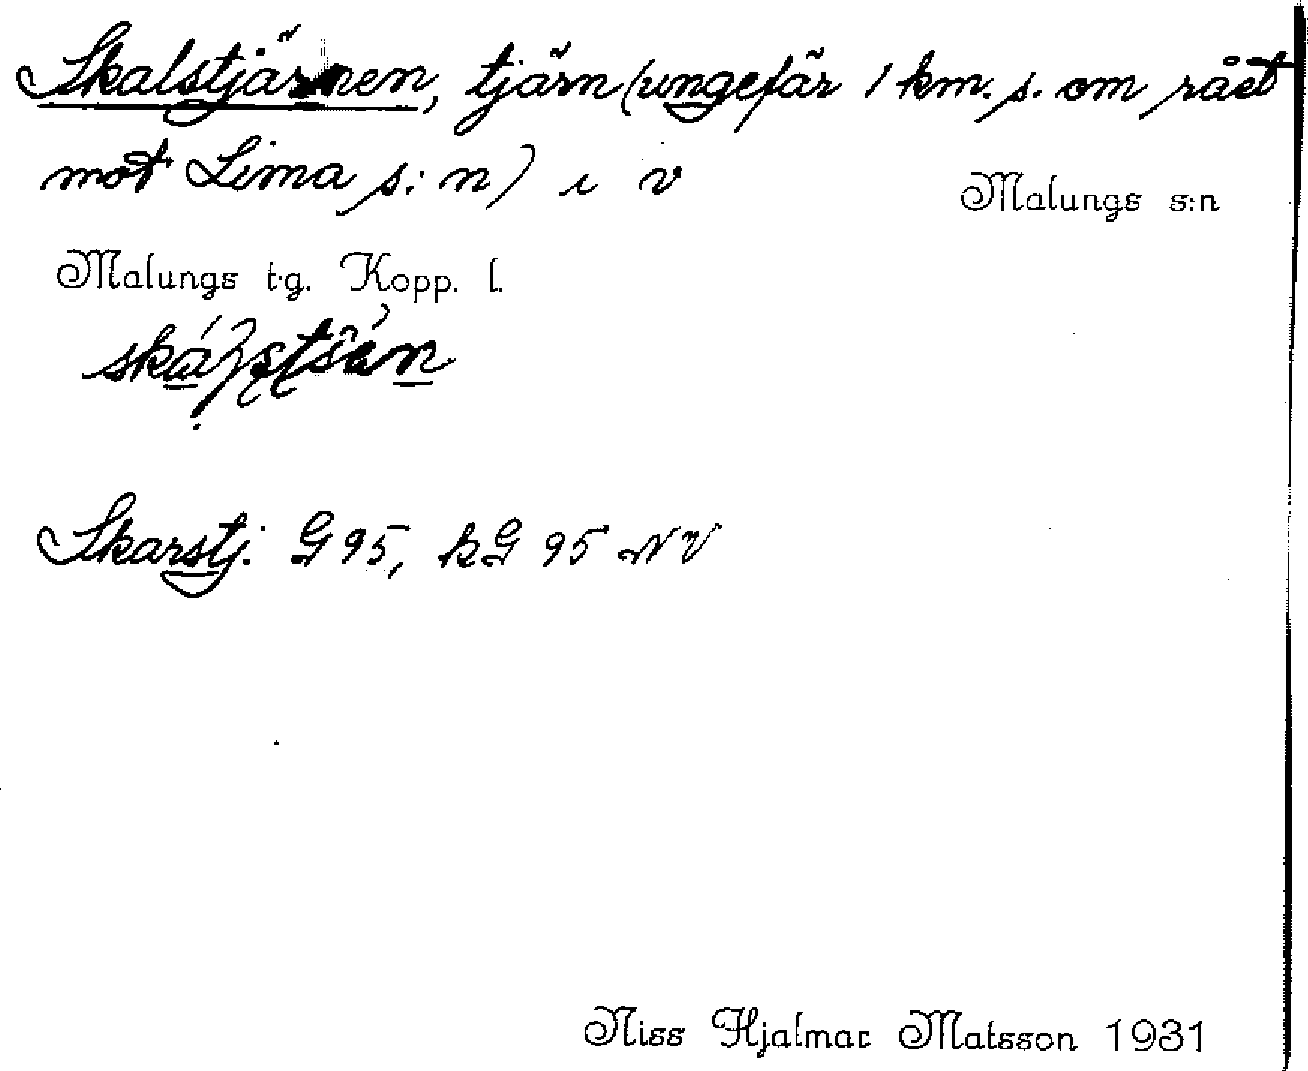 Skalstjärnen, tjärn (ungefär 1 km. s. om rået
mot Lima s:n) i v
Malungs s:n
Malungs t.g. Kopp. l.
Skarstj. G 95, kG 95 NV
Niss Hjalmar Matsson 1931